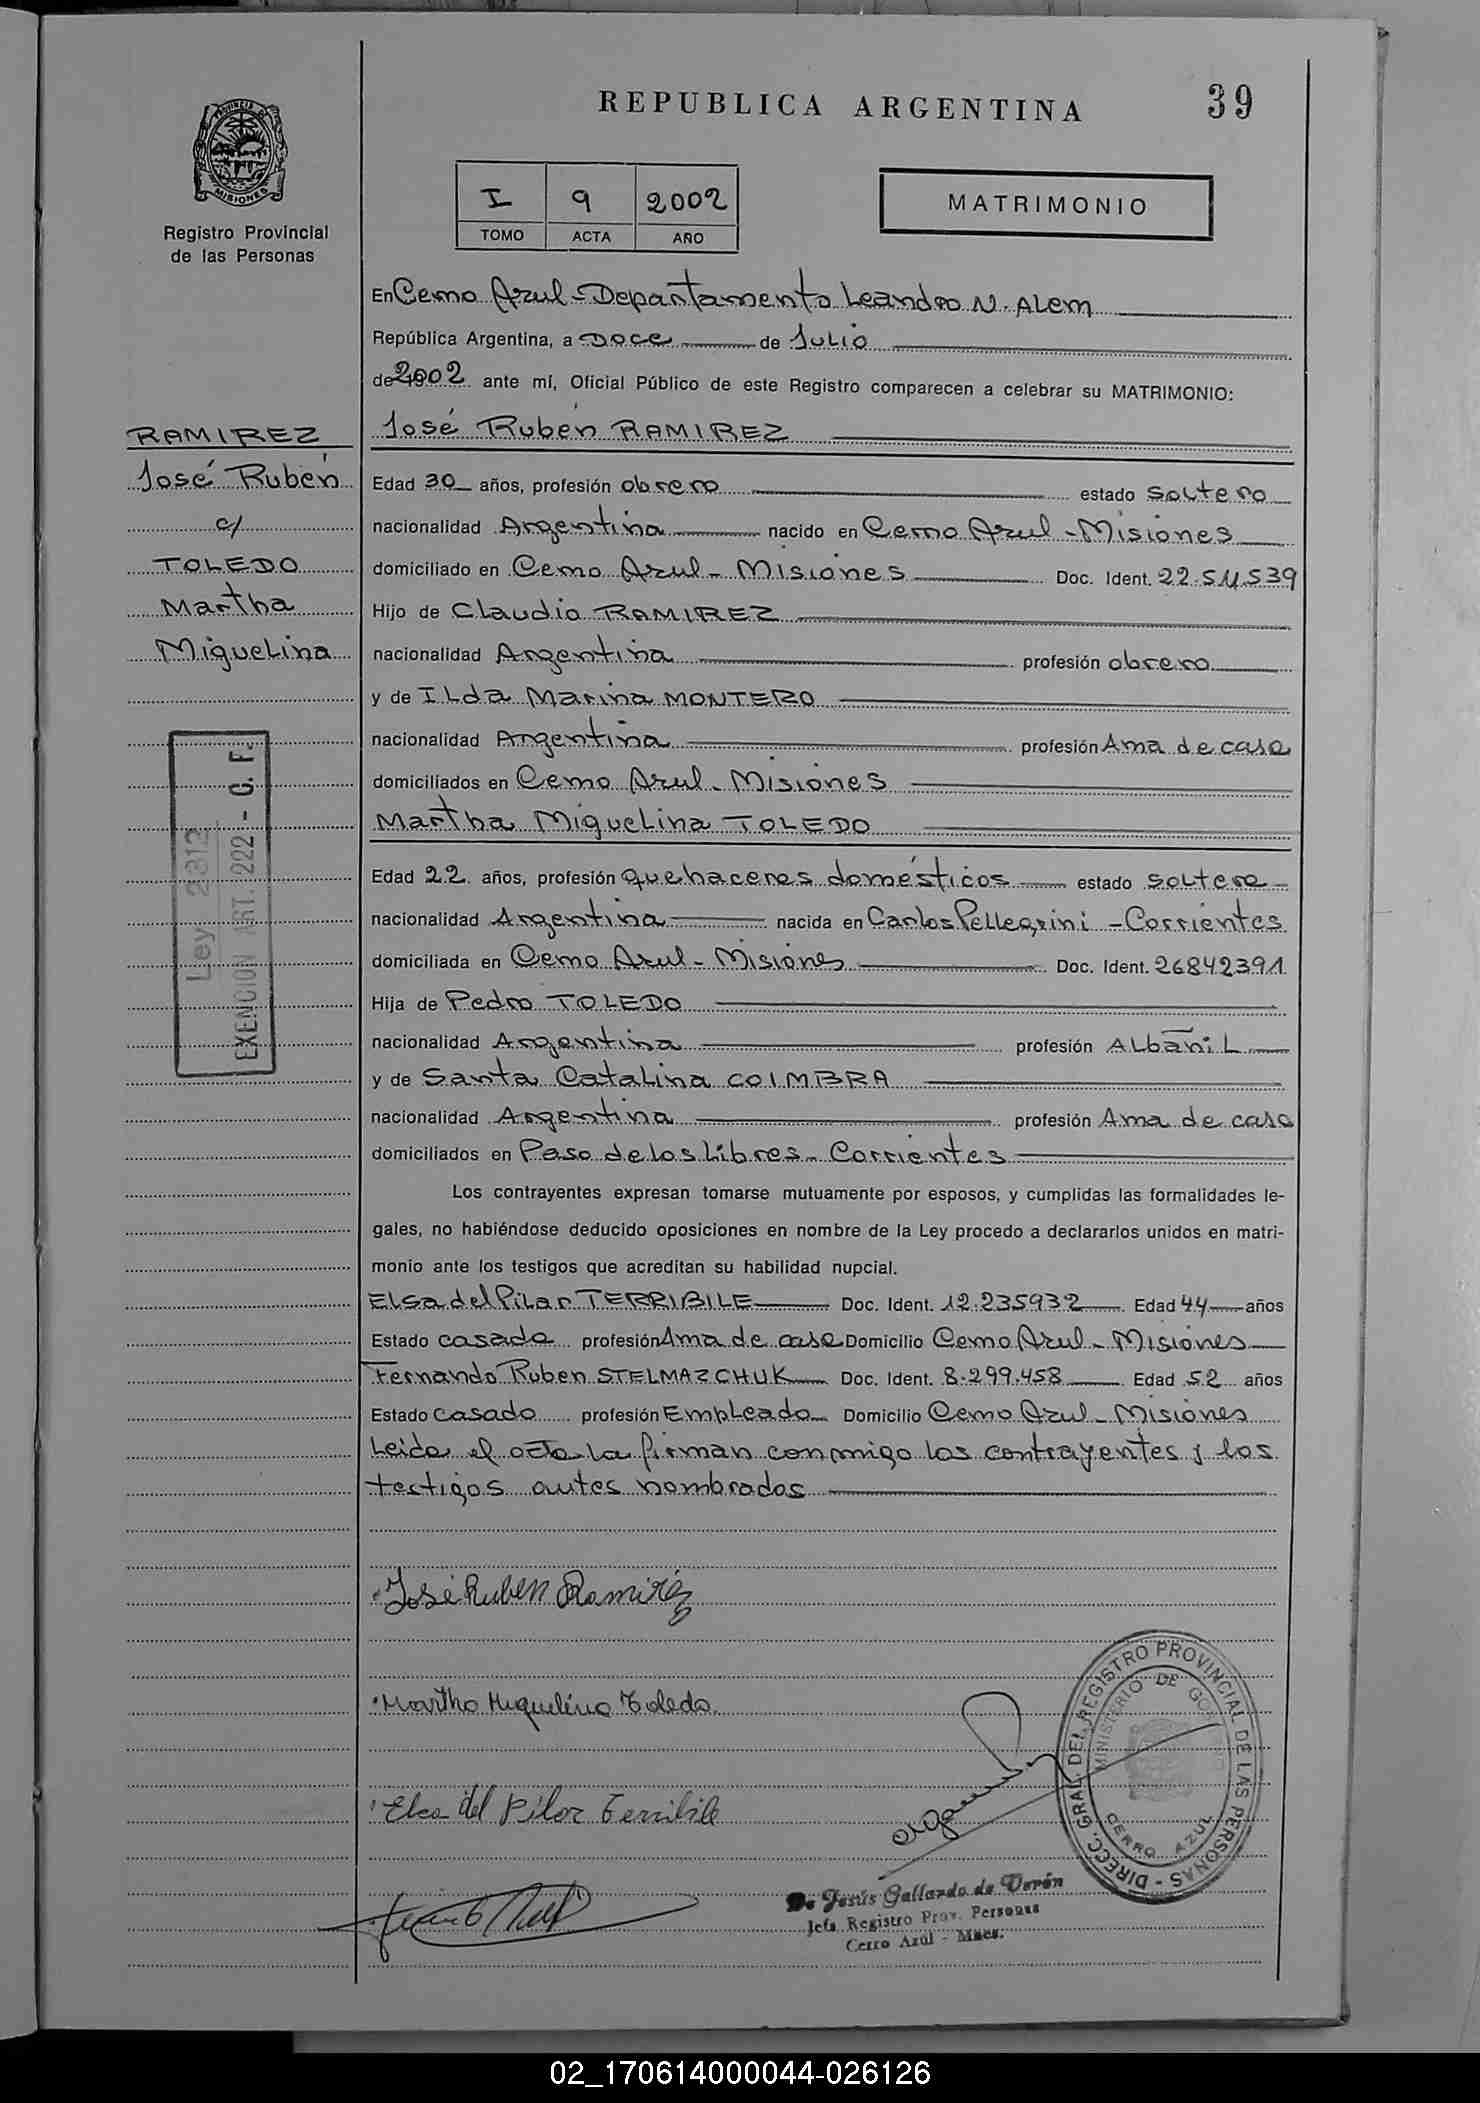 REPUBLICA ARGENTINA
39
PROVINCIA DE
MISIONES
Registro Provincial
de las Personas
I 9 2002
TOMO ACTA AÑO
MATRIMONIO
En Cerro Azul - Departamento Leandro N. Alem
República Argentina, a Doce de Julio
de 2002 ante mí, Oficial Público de este Registro comparecen a celebrar su MATRIMONIO:
José Rubén RAMIREZ
RAMIREZ
José Rubén
c/
TOLEDO
Martha
Miguelina
Edad 30 años, profesión obrero estado soltero
nacionalidad Argentina nacido en Cerro Azul - Misiones
domiciliado en Cerro Azul - Misiones Doc. Ident.
Hijo de Claudio RAMIREZ
nacionalidad Argentina profesión obrero
y de Ilda Marina MONTERO
nacionalidad Argentina profesión Ama de casa
domiciliados en Cerro Azul - Misiones
Martha Miguelina TOLEDO
Ley 2812
EXENCION ART. 222 - C. F.
Edad 22 años, profesión quehaceres domésticos estado soltera
nacionalidad Argentina nacida en Carlos Pellegrini - Corrientes
domiciliada en Cerro Azul - Misiones Doc. Ident. 26842391
Hija de Pedro TOLEDO
nacionalidad Argentina profesión Albañil
y de Santa Catalina COIMBRA
nacionalidad Argentina profesión Ama de casa
domiciliados en Paso de los Libres - Corrientes
Los contrayentes expresan tomarse mutuamente por esposos, y cumplidas las formalidades le-
gales, no habiéndose deducido oposiciones en nombre de la Ley procedo a declararlos unidos en matri-
monio ante los testigos que acreditan su habilidad nupcial.
Elsa del Pilar TERRIBILE Doc. Ident. 12.235932 Edad 44 años
Estado casada profesión Ama de casa Domicilio Cerro Azul - Misiones
Fernando Ruben STELMAZCHUK Doc. Ident. 8.299.458 Edad 52 años
Estado casado profesión Empleado Domicilio Cerro Azul - Misiones
Leida el acta la firman conmigo los contrayentes y los
testigos antes nombrados
José Ruben Ramirez
Martha Miguelina Toledo
Elsa del Pilar Terribile
DIRECC. GRAL. DEL REGISTRO PROVINCIAL DE LAS PERSONAS -
MINISTERIO DE
CERRO AZUL
De Jesús Gallardo de Verón
Jefa Registro Prov. Personas
Cerro Azúl - Mnes.
02_170614000044-026126